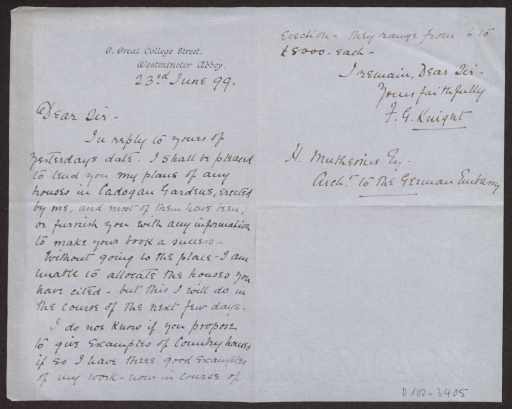 9. Great College Street.
Westminster Abbey.
23rd June 99.
Dear Sir -
In reply to yours of
yesterdays date. I shall be pleased
to lend you my plans of any
houses in Cadogan Gardens, erected
by me, and most of them have been,
or furnish you with any information
to make your book a success -
Without going to the place - I am
unable to allocate the houses you
have cited - but this I will do in
the course of the next few days.
I do not know if you propose
to give Examples of Country houses
if so I have three good Examples
of my work - now in course of
Erection - they range from 4 to
£8000 - each -
I remain, Dear Sir -
Yours faithfully
F. G. Knight
H. Muthesius Esq -
Archt to the German Embassy
D 102-3405